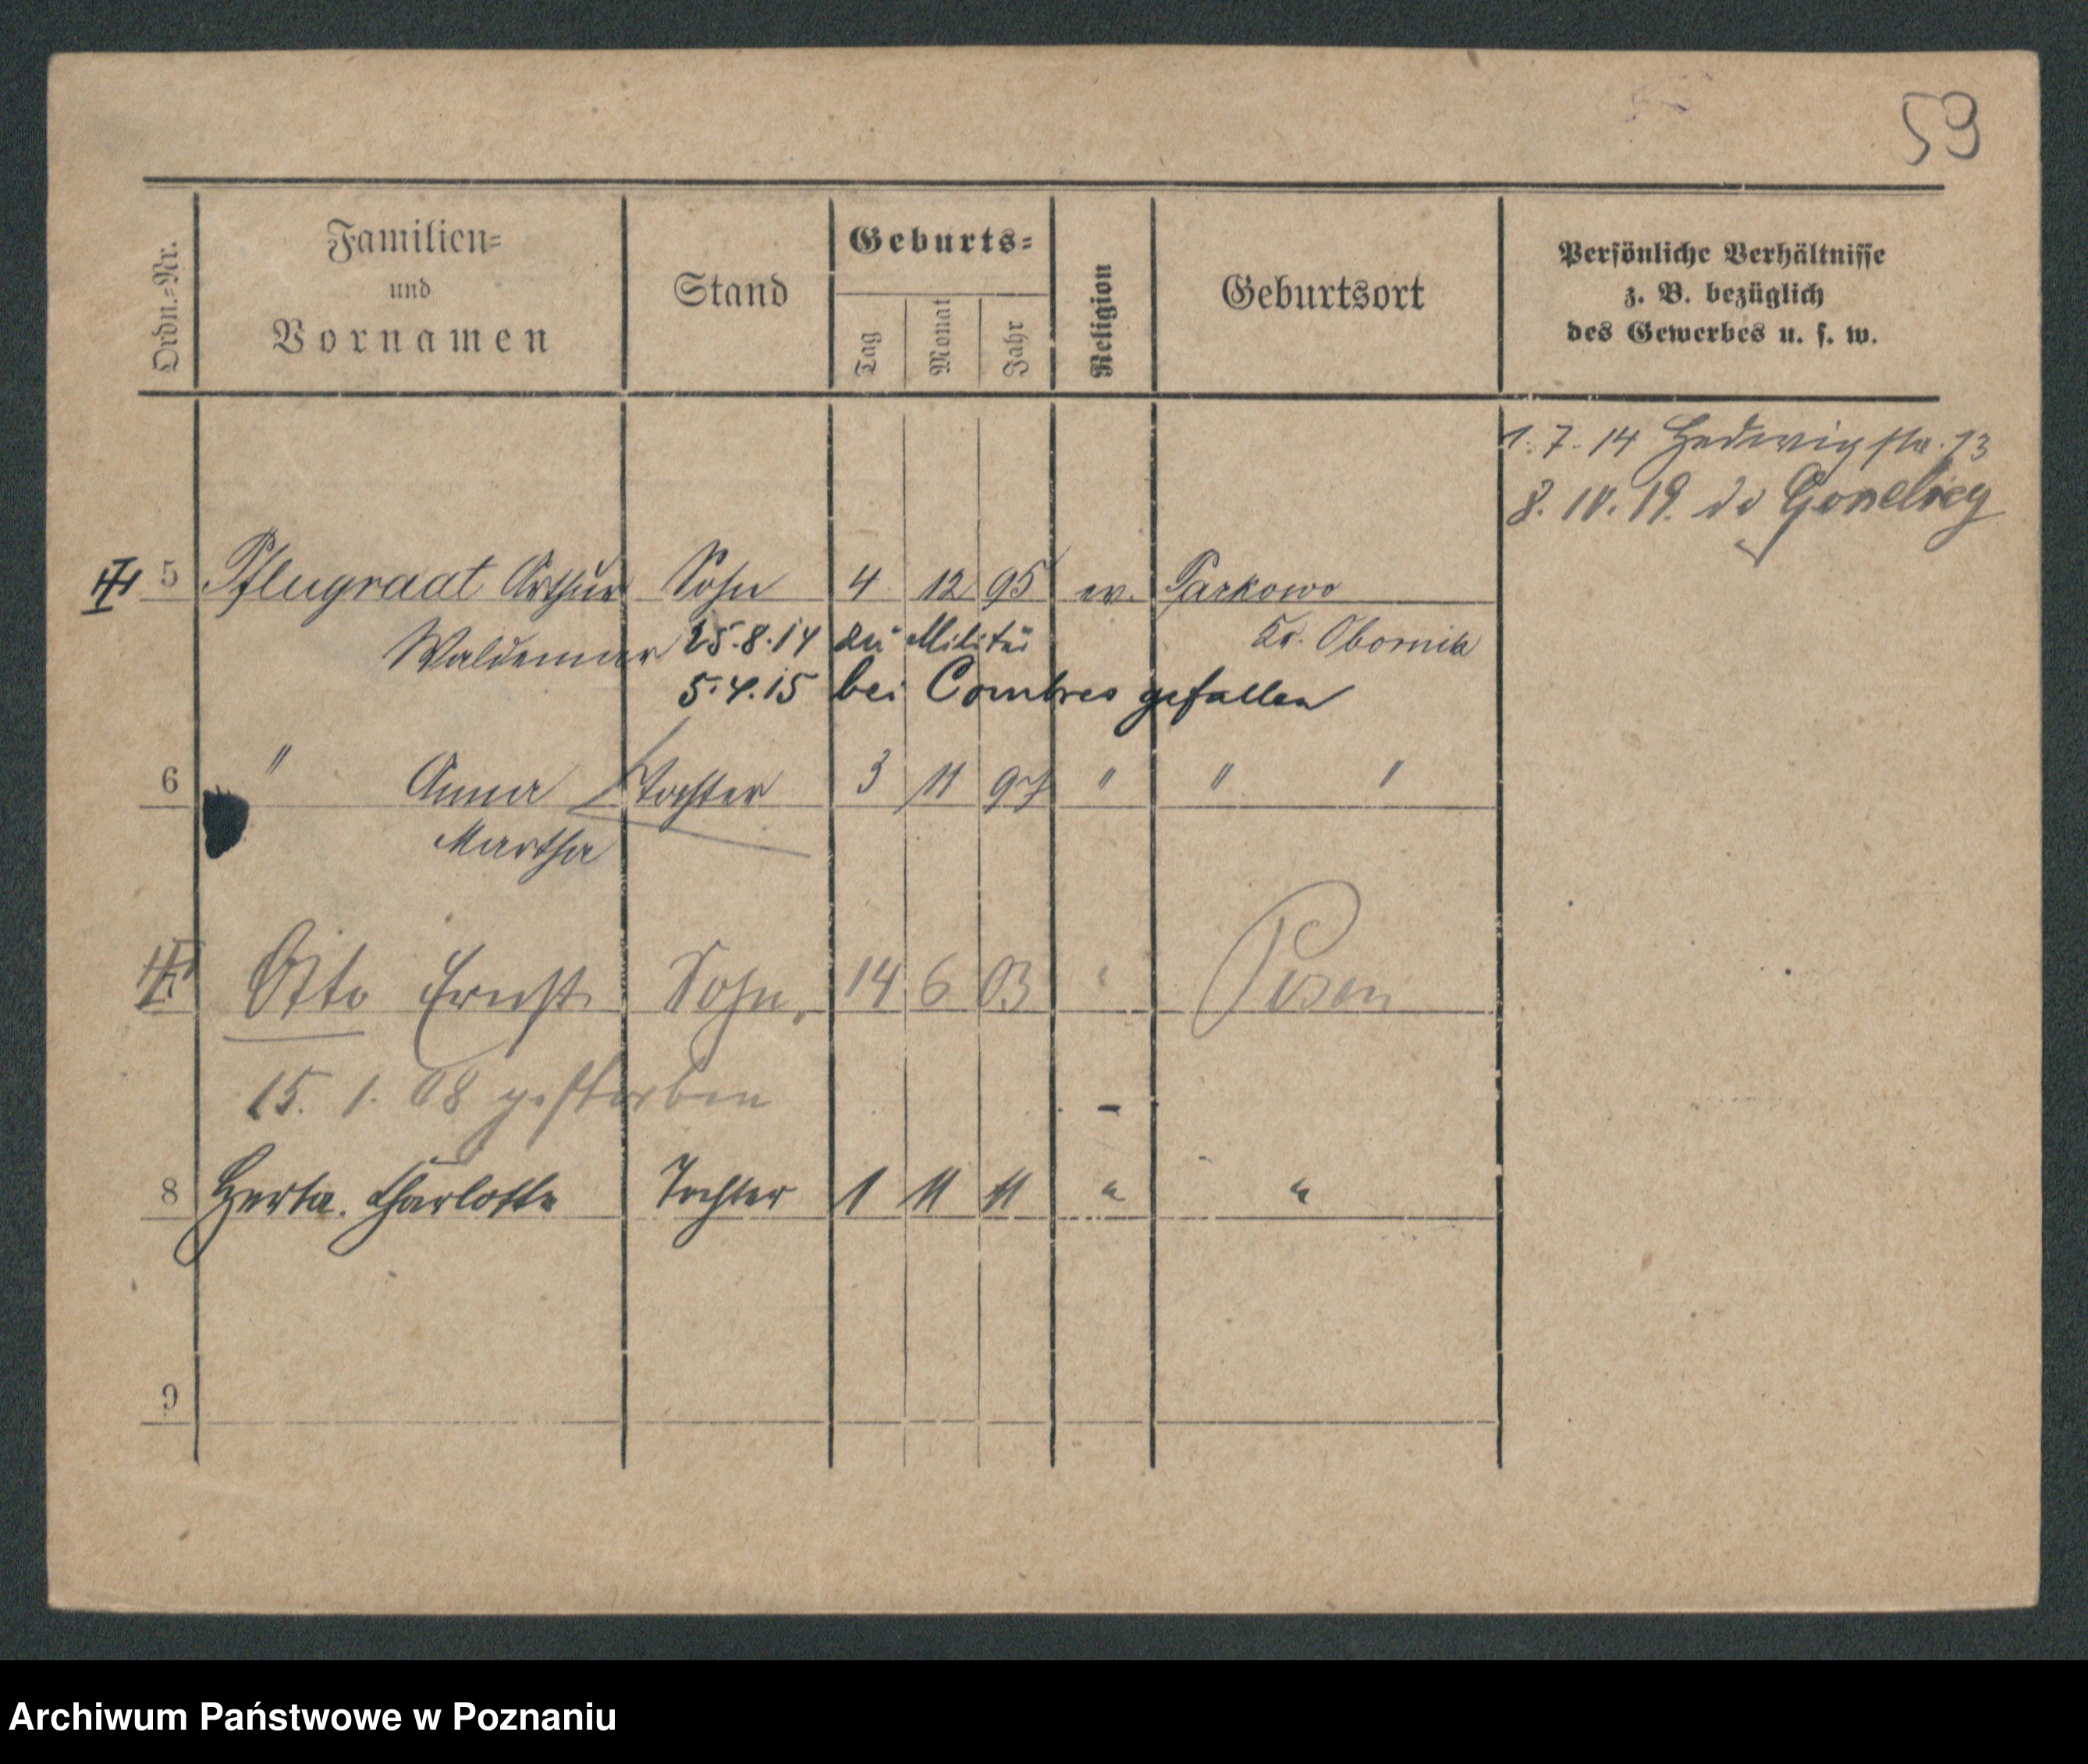 59
Ordn.-Nr.
Familien-
und
Vornamen
Stand
Geburts-
Tag
Monat
Jahr
Religion
Geburtsort
Persönliche Verhältnisse
z. B. bezüglich
des Gewerbes u. s. w.
1. 7. 14 Hedwigstr. 13
8. IV. 19.
5 Pflugradt Arthur Sohn 4 12 95 ev. Parkowo
Waldemar 25.8.14 zu Militär Kr. Obornik
5.4.15 bei Combres gefallen
6 " Anna Tochter 3 11 97 " " "
Martha
Otto Ernst Sohn 14 6 03 " Posen
15. 1. 08 gestorben
8 Herta. Charlotte Tochter 1 11 11 " "
9
Archiwum Państwowe w Poznaniu